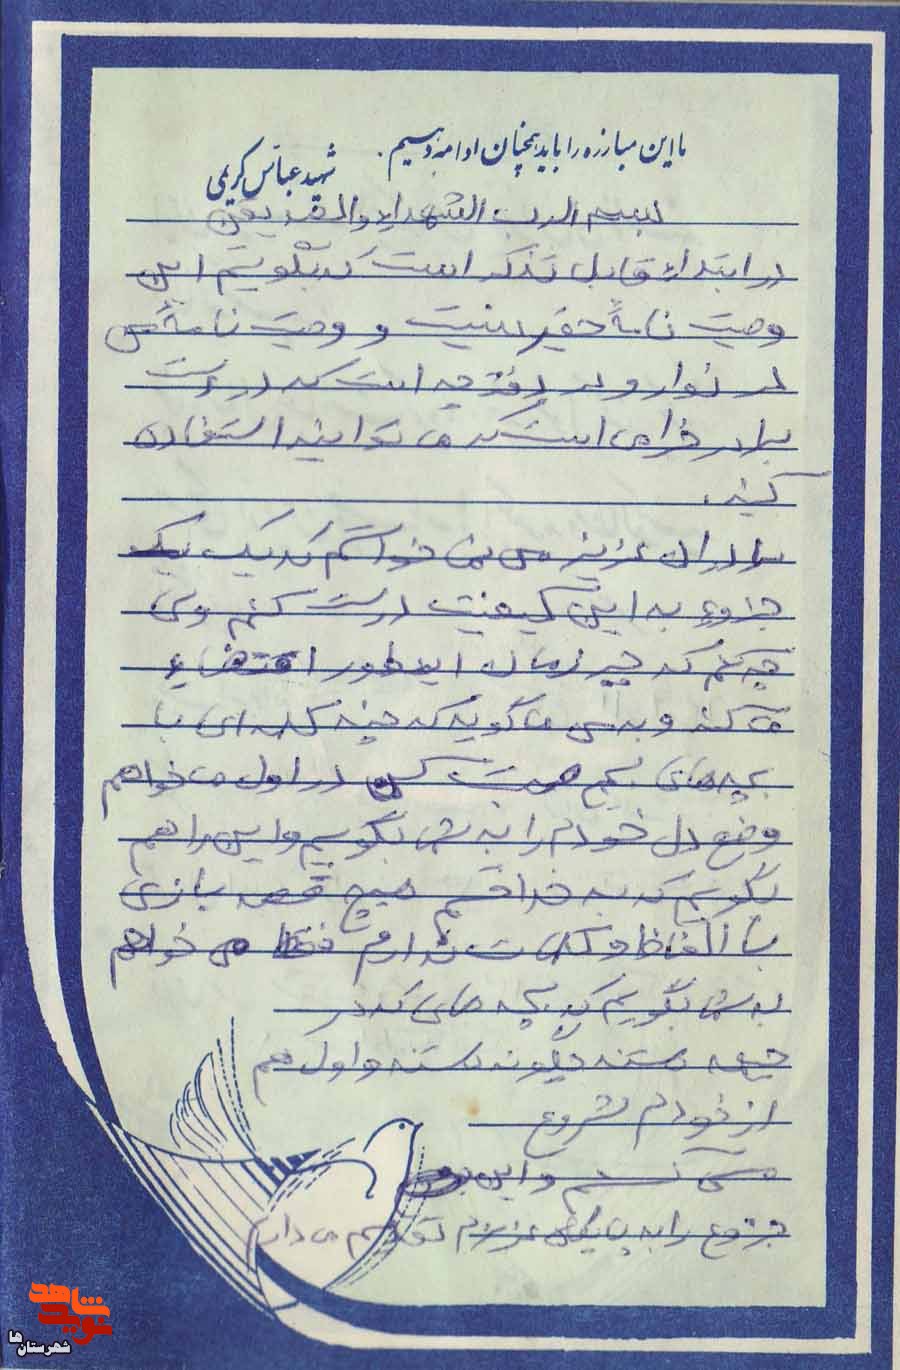 ما این مبارزه را باید همچنان ادامه دهیم.
شهید عباس کریمی
بسم الرب الشهداء والصدیقین
در ابتداء قابل تذکر است که بگویم این
وصیت نامهٔ حقیر نیست و وصیت نامه‌ٔ من
در نوار و در دفترچه است که در دست
برادر خرامی است که می توانید استفاده
کنید.
برادران عزیز من می خواستم که یک
جزوه به این کیفیت درست کنم ولی
چه کنم که جبر زمان اینطور اقتضاء
می کند و به من می گوید که چند کلمه ای با
بچه های بسیج صحبت کن در اول می خواهم
وضع دل خودم را به شما بگویم و این را هم
بگویم که به خدا قسم هیچ قصد بازی
با الفاظ و کلمات ندارم فقط می خواهم
به شما بگویم که بچه های که در
جبهه هستند چگونه هستند و اول هم
از خودم شروع
می کنم و این
جزوه را به پایگاه عزیزم تقدیم می دارم
نوید شاهد
شهرستان ها